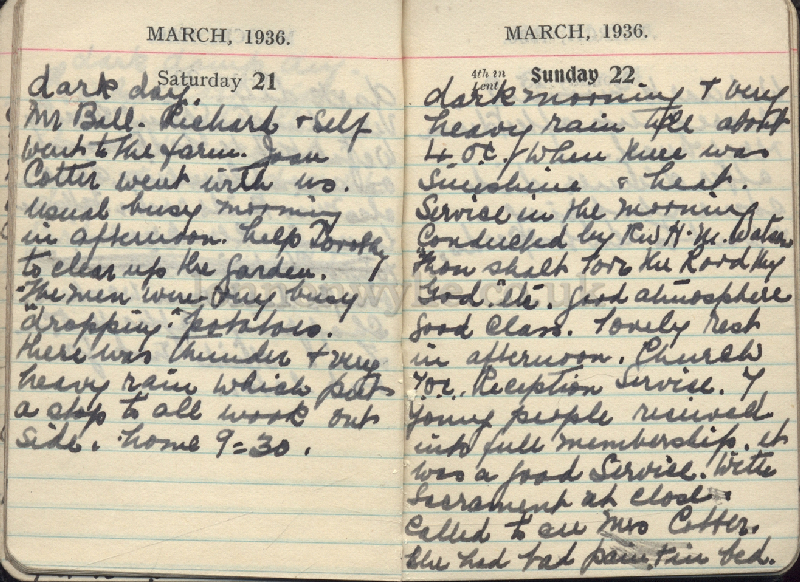 MARCH, 1936.
Saturday 21
dark day.
Mr Ball. Richard + Self
went to the farm. Joan
Cotter went with us.
usual busy morning
in afternoon. help Dorothy
to clear up the garden.
"The men were very busy
"dropping" potatoes.
there was thunder + very
heavy rain which put
a stop to all work out
side. home 9=30.
MARCH, 1936.
4th in Lent
Sunday 22
dark morning + very
heavy rain till about
4 oc. When there was
Sunshine & heat.
Service in the morning
Conducted by Rev H. M. Watson
"Thou shalt love the Lord thy
God." etc. good atmosphere
good Class. lovely rest
in afternoon. Church
7oc. Reception Service. 7
young people received
into full membership. it
was a good Service. With
Sacrament at close.
Called to see Mrs Cotter.
She had bad pain + in bed.